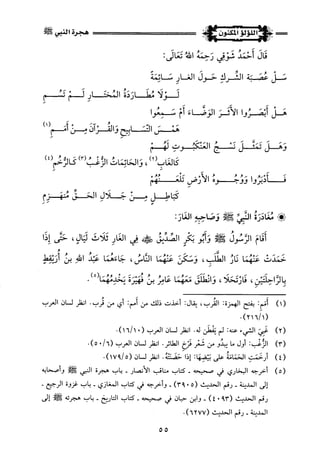 هجرة النبي ﷺ
اللؤلؤ المكنون
قَالَ أَحْمَدُ شَوْقِي رَحِمَهُ اللهُ تَعَالَى:
سَلْ عُصْبَةَ الشِّرْكِ حَوْلَ الغَارِ سَائِمَةً
لَوْلَا مُطَارَدَةُ المُخْتَارِ لَمْ تَسُمِ
هَلْ أَبْصَرُوا الأَثَرَ الوَضَّاءَ أَمْ سَمِعُوا
هَمْسَ التَّسَابِيحِ وَالقُرْآنِ مِنْ أَمَمِ (١)
وَهَلْ تَمَثَّلَ نَسْجُ العَنْكَبُوتِ لَهُمْ
كَالغَابِ (٢)، وَالحَائِمَاتُ الزُّغْبُ (٣) كَالرُّخَمِ (٤)
فَأَدْبَرُوا وَوُجُوهُ الأَرْضِ تَلْعَنُهُمْ
كَبَاطِلٍ مِنْ جَلَالِ الحَقِّ مُنْهَزِمِ
* مُغَادَرَةُ النَّبِيِّ ﷺ وَصَاحِبِهِ الغَارَ:
أَقَامَ الرَّسُولُ ﷺ وَأَبُو بَكْرٍ الصِّدِّيقُ فِي الغَارِ ثَلَاثَ لَيَالٍ، حَتَّى إِذَا
خَمَدَتْ عَنْهُمَا نَارُ الطَّلَبِ، وَسَكَنَ عَنْهُمَا النَّاسُ، جَاءَهُمَا عَبْدُ اللهِ بنُ أُرَيْقِطٍ
بِالرَّاحِلَتَيْنِ، فَارْتَحَلَا، وَانْطَلَقَ مَعَهُمَا عَامِرُ بنُ فُهَيْرَةَ يَخْدِمُهُمَا (٥).
(١) أَمَم: بفتح الهمزة: القُرب، يقال: أخذت ذلك من أَمَم: أي من قُرب. انظر لسان العرب
(٢١٦/١).
(٢) غَبِيَ الشيء عنه: لم يَفْطَن له. انظر لسان العرب (١٦/١٠).
(٣) الزُّغْب: أول ما يبدُو من شَعْرِ فَرْخِ الطائر. انظر لسان العرب (٥٠/٦).
(٤) أَرْخَمَتِ الحَمَامَةُ على بَيْضِهَا: إذا حَضَنَتْهُ. انظر لسان (١٧٩/٥).
(٥) أخرجه البخاري في صحيحه - كتاب مناقب الأنصار - باب هجرة النبي ﷺ وأصحابه
إلى المدينة - رقم الحديث (٣٩٠٥) - وأخرجه في كتاب المغازي - باب غزوة الرجيع -
رقم الحديث (٤٠٩٣) - وابن حبان في صحيحه - كتاب التاريخ - باب هجرته ﷺ إلى
المدينة - رقم الحديث (٦٢٧٧).
٥٥